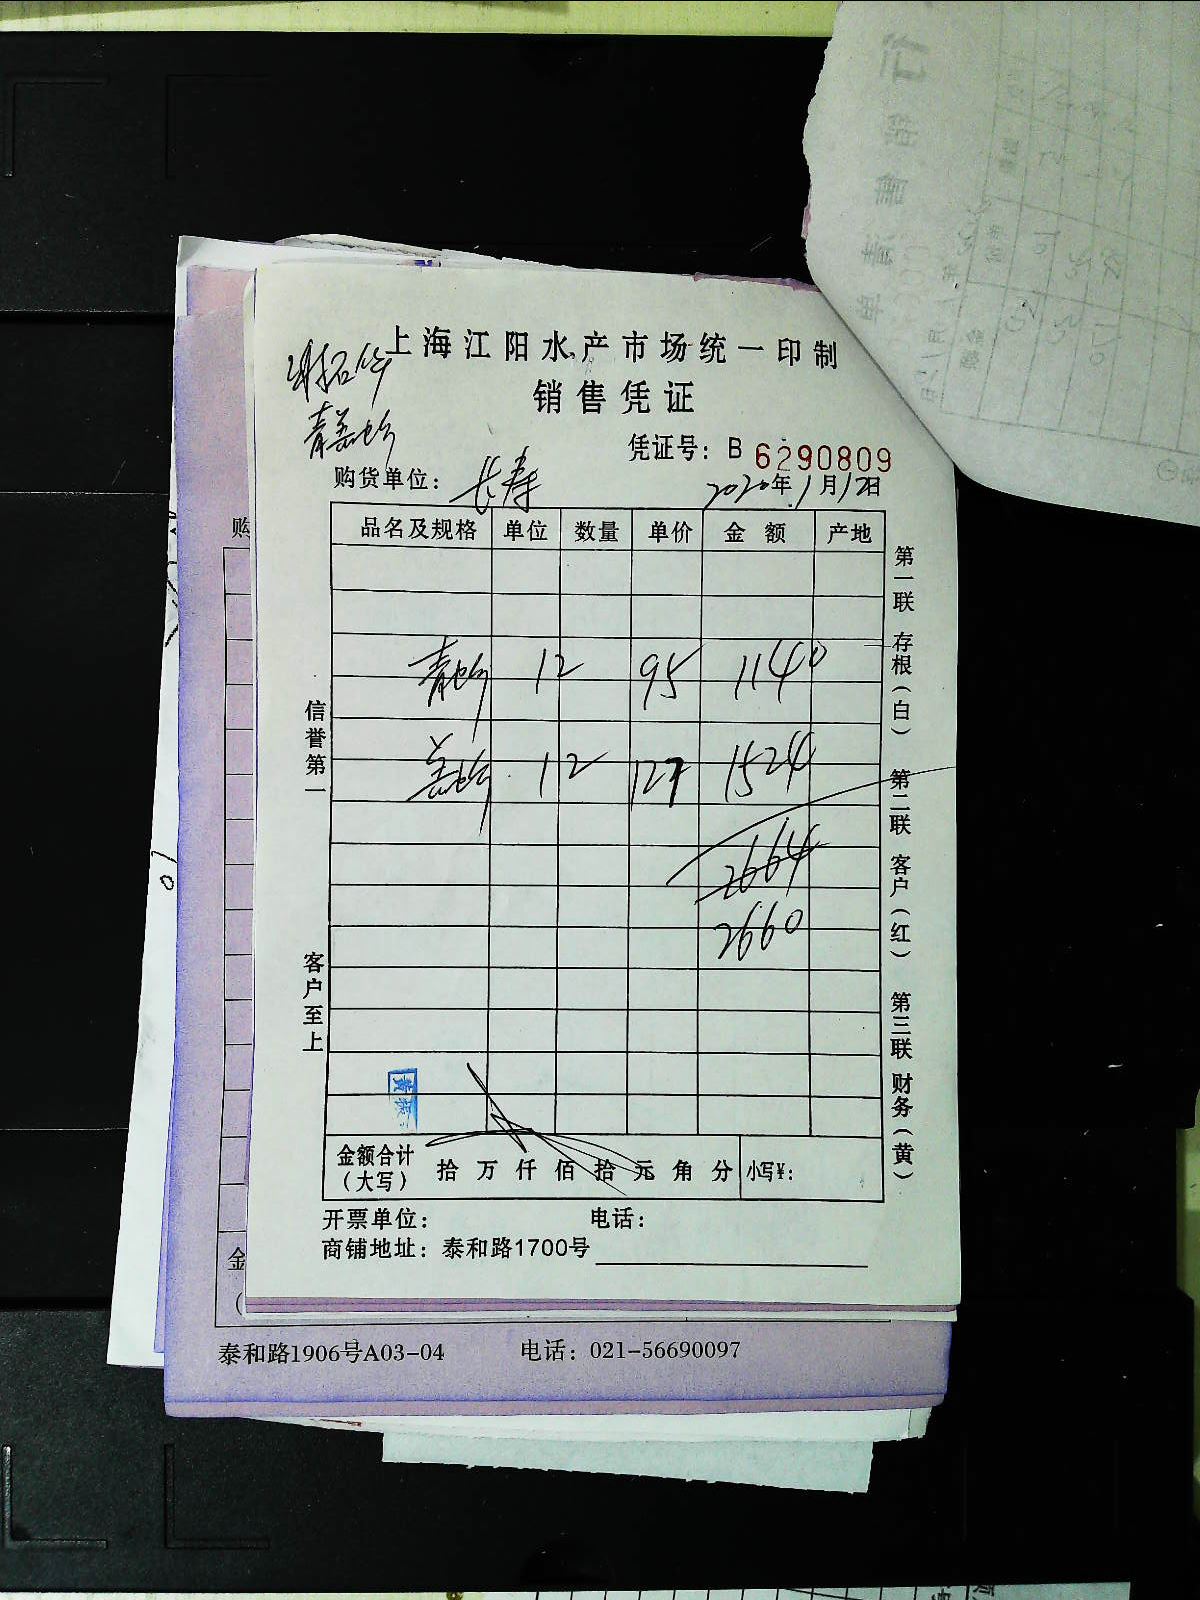 上海江阳水产市场统一印制
销售凭证
凭证号：B 6290809
购货单位：长寿 2020年1月12日
品名及规格 单位 数量 单价 金额 产地
青蛤 12 95 1140
盖蛤 12 127 1524
2664
2660
信誉第一
客户至上
第一联 存根（白） 第二联 客户（红） 第三联 财务（黄）
金额合计（大写） 拾 万 仟 佰 拾 元 角 分 小写¥：
开票单位： 电话：
商铺地址：泰和路1700号
购
金
泰和路1906号A03-04 电话：021-56690097